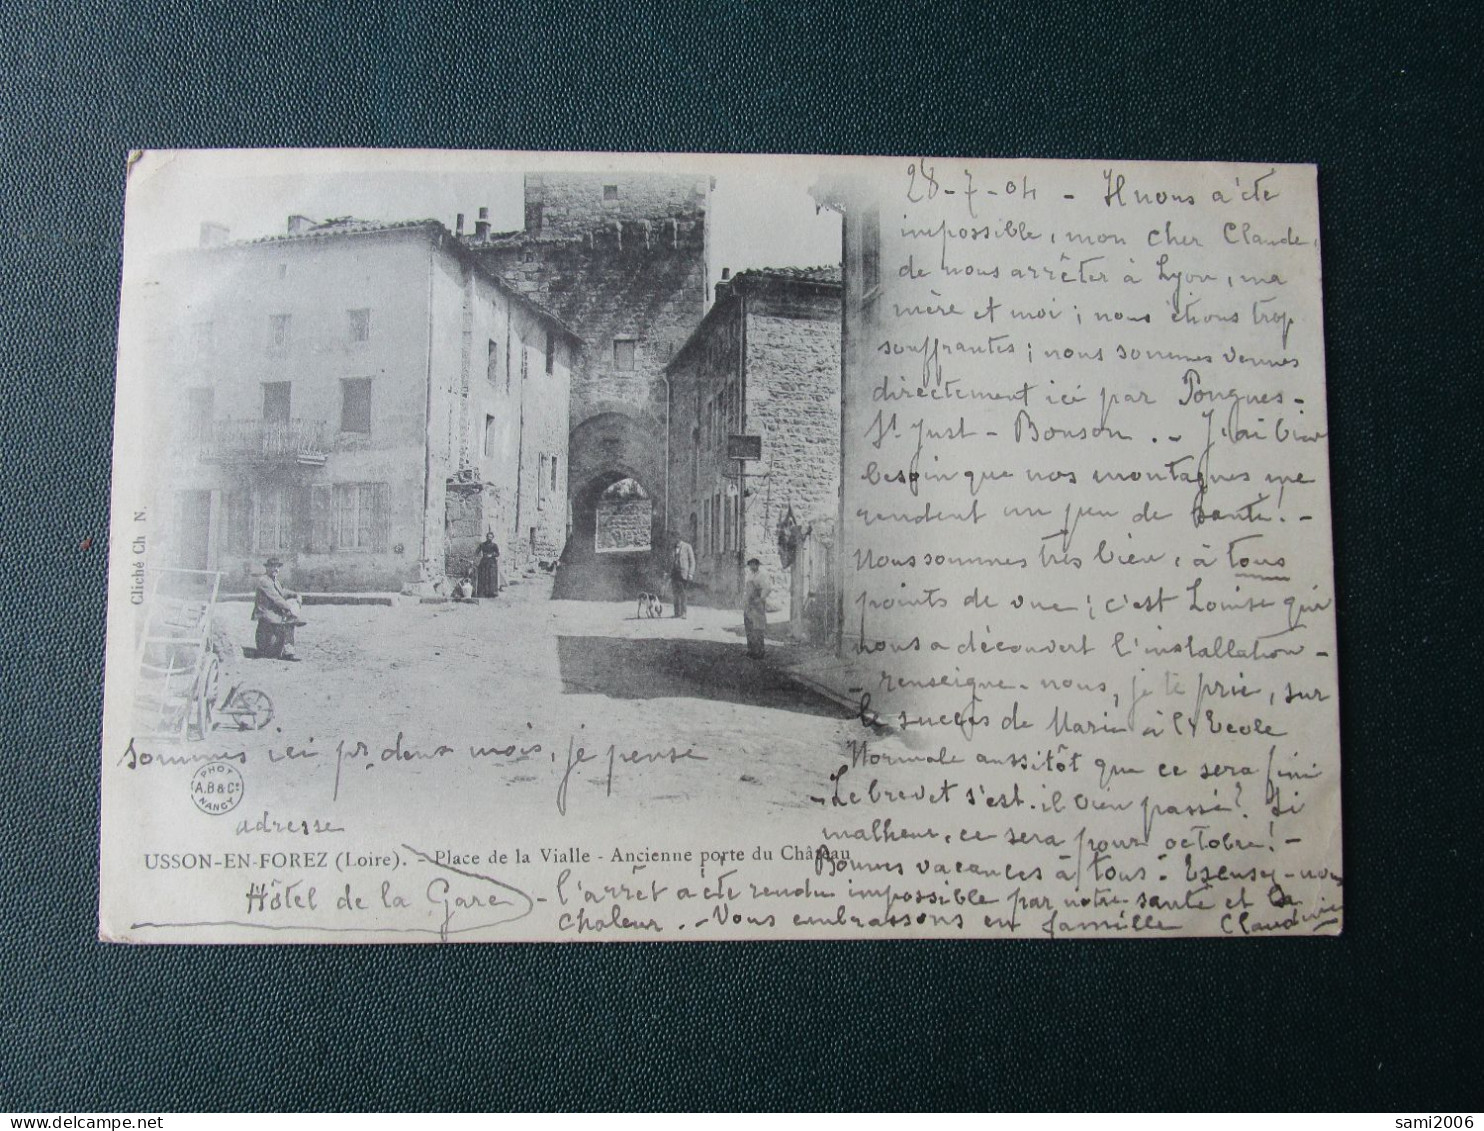 28-7-04 - Il nous a été
impossible, mon cher Claude,
de nous arrêter à Lyon, ma
mère et moi ; nous étions trop
souffrantes ; nous sommes venues
directement ici par Pougues-
St Just - Bonson. - J'ai bien
besoin que nos montagnes me
rendent un peu de santé. -
Nous sommes très bien, à tous
points de vue ; c'est Louise qui
nous a découvert l'installation -
- renseigne-nous, je te prie, sur
le succès de Marie à l'Ecole
Normale aussitôt que ce sera fini
- Le brevet s'est-il bien passé ? Si
malheur, ce sera pour octobre ! -
Bonnes vacances à tous. Excusez-nous
- l'arrêt a été rendu impossible par notre santé et la
chaleur. - Vous embrassons en famille Claudine
sommes ici pr deux mois, je pense
adresse
Hôtel de la Gare
Cliché Ch N.
PHOT
A.B & Cie
NANCY
USSON-EN-FOREZ (Loire). - Place de la Vialle - Ancienne porte du Château
delcampe.net
sami2006